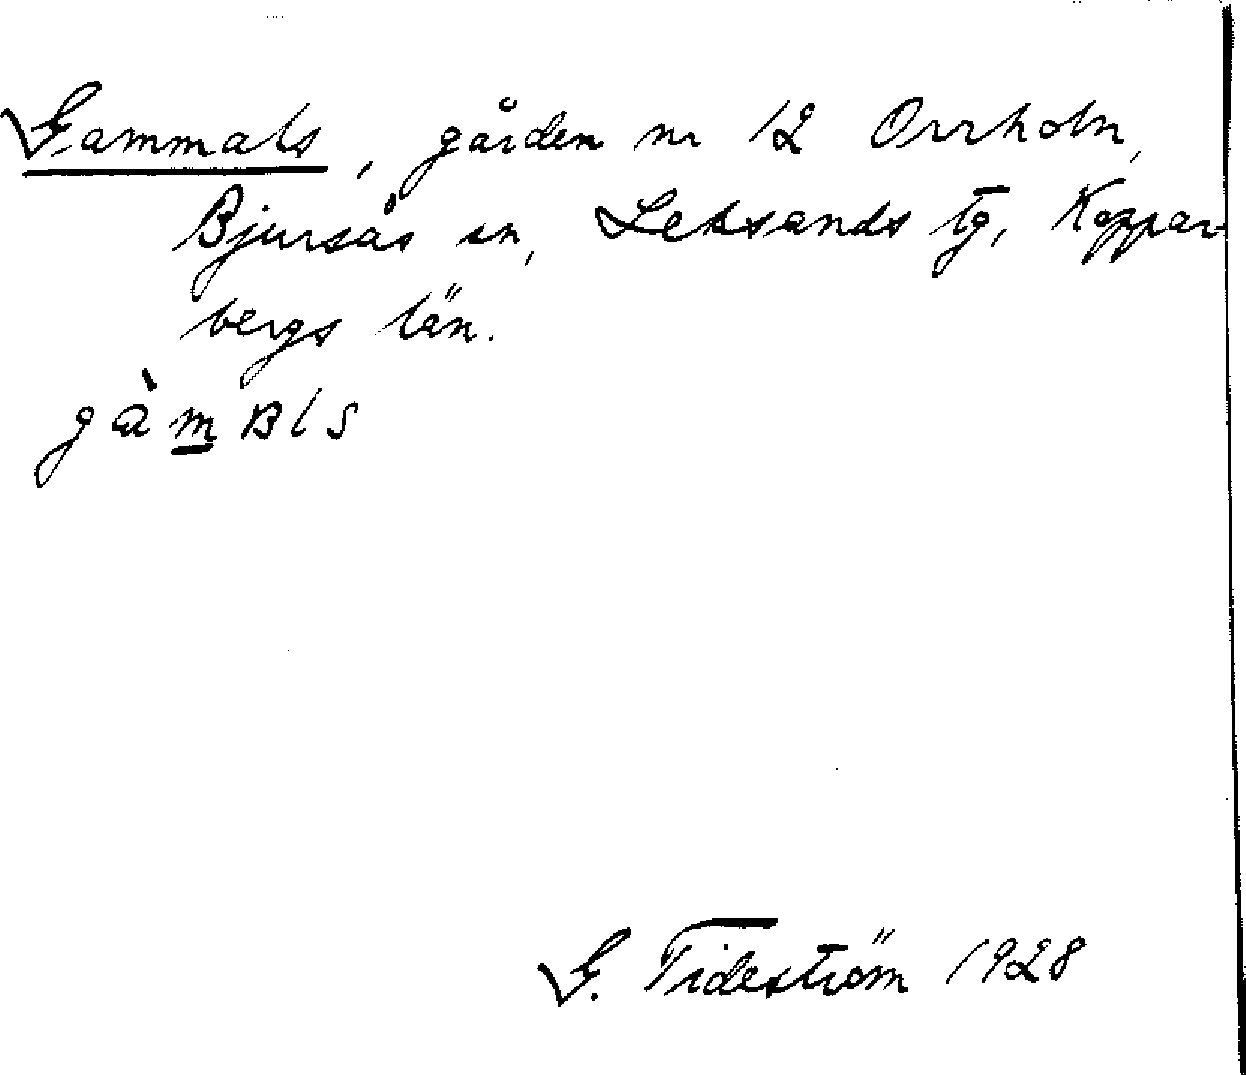 Gammals, gården nr 12 Orrholn,
Bjursås sn, Leksands tg, Koppar-
bergs län.
gàmBls
G. Tideström 1928